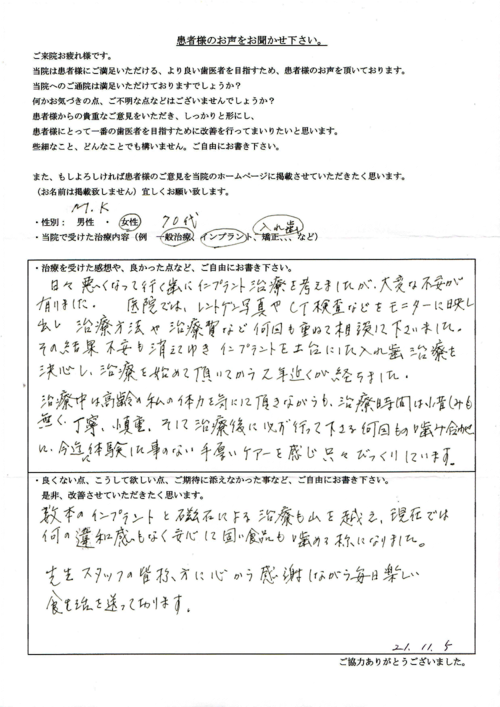 患者様のお声をお聞かせ下さい。
ご来院お疲れ様です。
当院は患者様にご満足いただける、より良い歯医者を目指すため、患者様のお声を頂いております。
当院へのご通院は満足いただけておりますでしょうか？
何かお気づきの点、ご不明な点などはございませんでしょうか？
患者様からの貴重なご意見をいただき、しっかりと形にし、
患者様にとって一番の歯医者を目指すために改善を行ってまいりたいと思います。
些細なこと、どんなことでも構いません。ご自由にお書き下さい。
また、もしよろしければ患者様のご意見を当院のホームページに掲載させていただきたく思います。
（お名前は掲載致しません）宜しくお願い致します。
M.K
・性別： 男性 ・ 女性 70代
入れ歯
・当院で受けた治療内容（例 一般治療、インプラント、矯正、、、など）
・治療を受けた感想や、良かった点など、ご自由にお書き下さい。
日々悪くなって行く歯にインプラント治療を考えましたが、大変な不安が
有りました。 医院では、レントゲン写真やCT検査などをモニターに映し
出し 治療方法や治療費など何回も重ねて相談して下さいました。
その結果不安も消えてゆき インプラントを土台にした入れ歯治療を
決心し、治療を始めて頂いてから2年近くが経ちました。
治療中は高齢の私の体力を気にして頂きながらも、治療時間は小昔しみも
無く、丁寧、慎重、そして治療後に必ず行って下さる何回もの噛み合わせ
に、今迄に体験した事のない手厚いケアーを感じ只々びっくりしています。
・良くない点、こうして欲しい点、ご期待に添えなかった事など、ご自由にお書き下さい。
是非、改善させていただきたく思います。
数本のインプラントと磁石による治療も山を越え、現在では
何の違和感もなく安心して固い食品も噛める様になりました。
先生 スタッフの皆様方に心から感謝しながら毎日楽しい
食生活を送って居ります。
21.11.5
ご協力ありがとうございました。